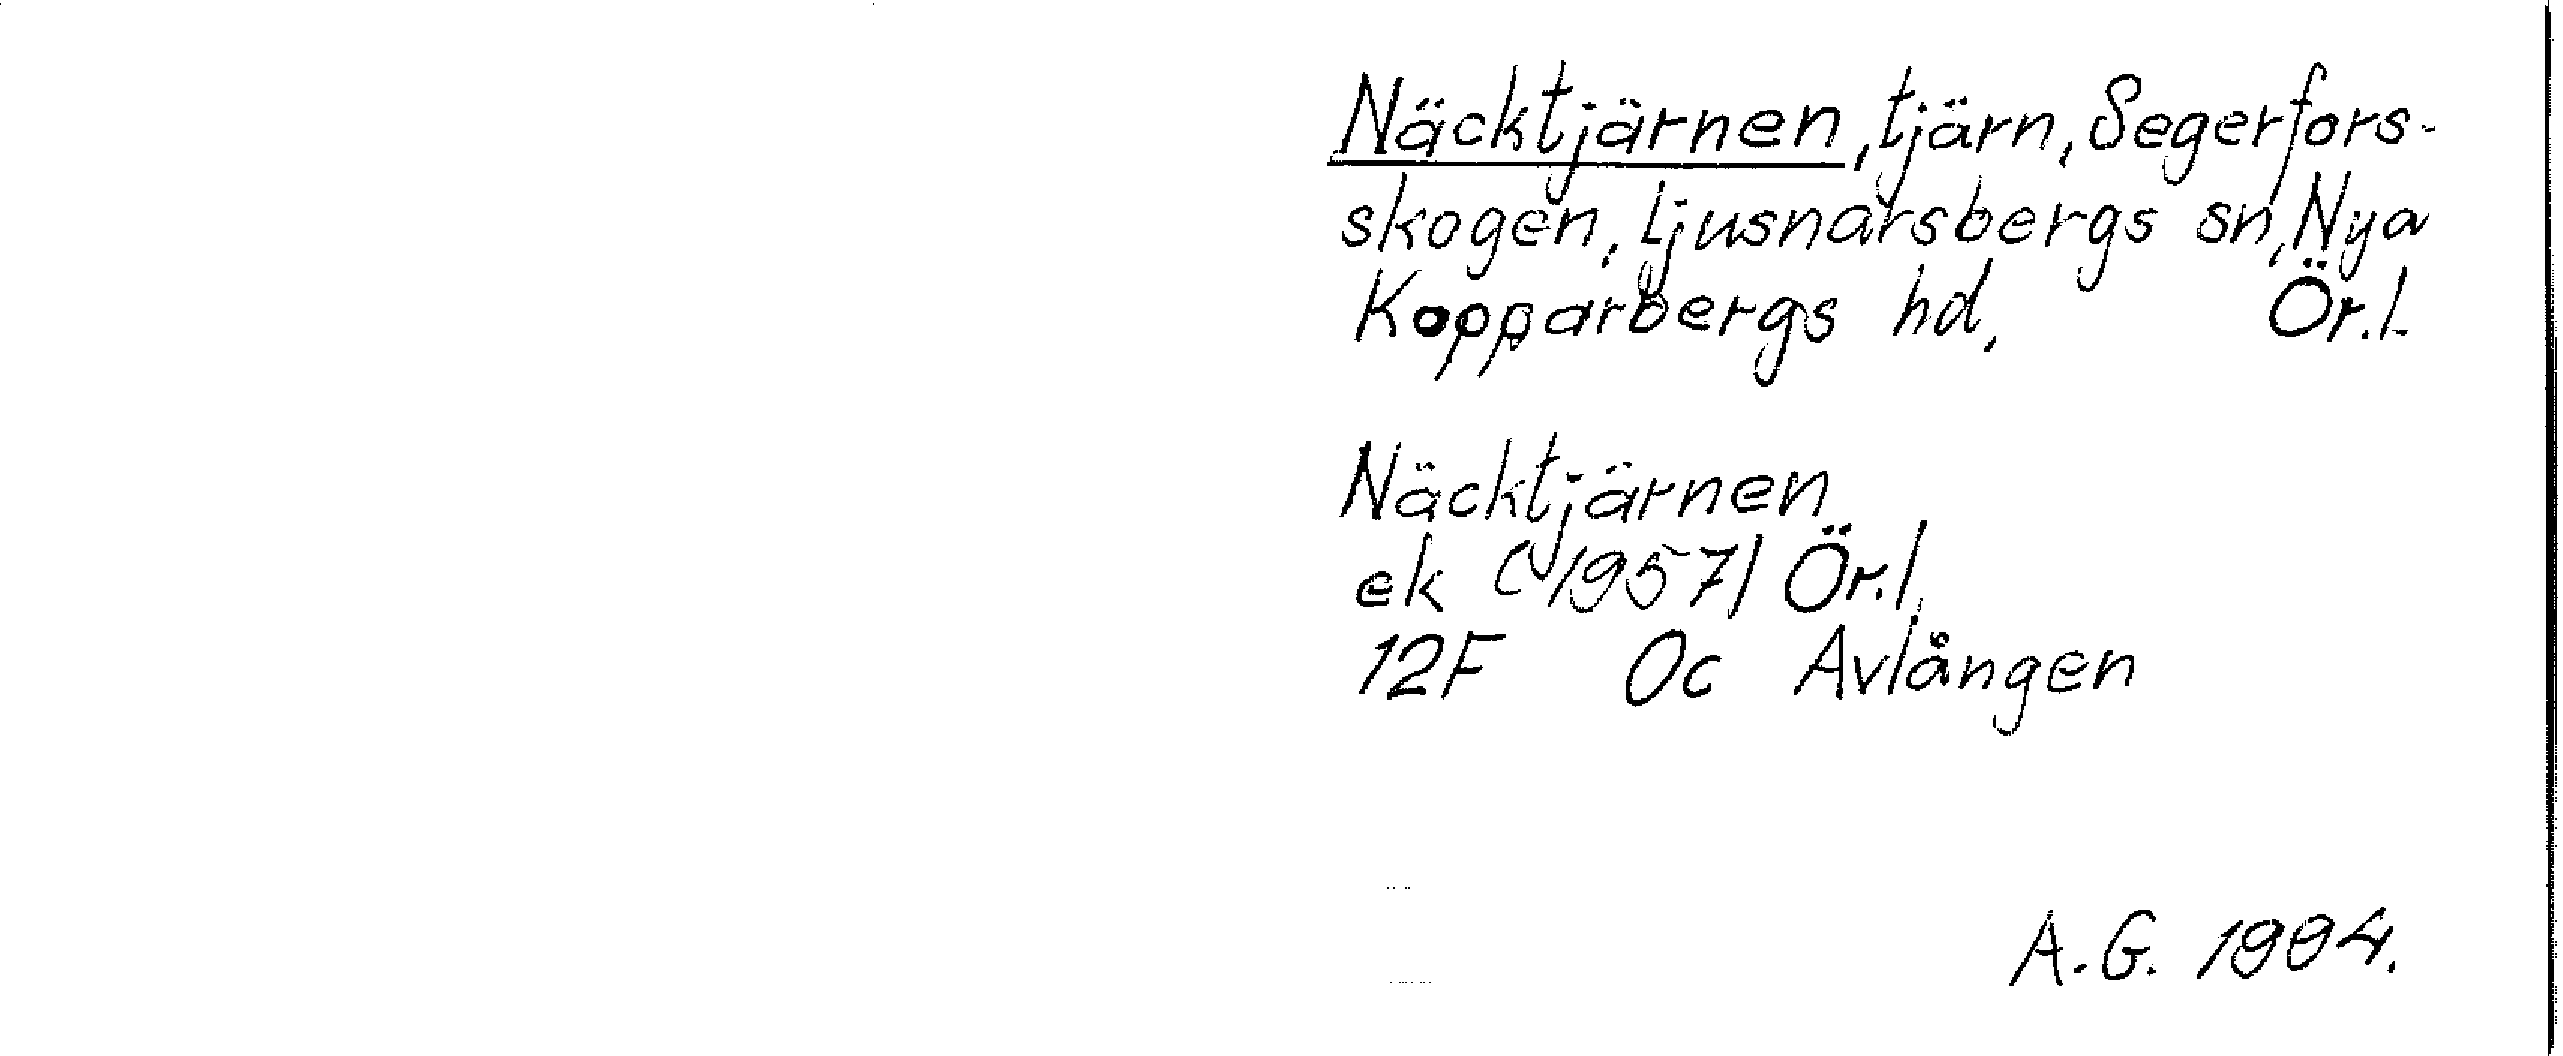 Näcktjärnen, tjärn, Segerfors-
skogen, Ljusnarsbergs sn, Nya
Kopparbergs hd, Ör.l.
Näcktjärnen
ek (1957) Ör.l.
12F 0c Avlången
A.G. 1994.